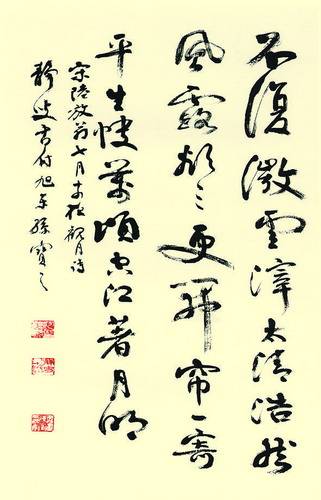 不復微雲滓太清浩然
風露欲三更開帘一寄
平生快萬頃空江著月明
宋陸放翁七月十四夜觀月詩
靜書付旭東孫寶之